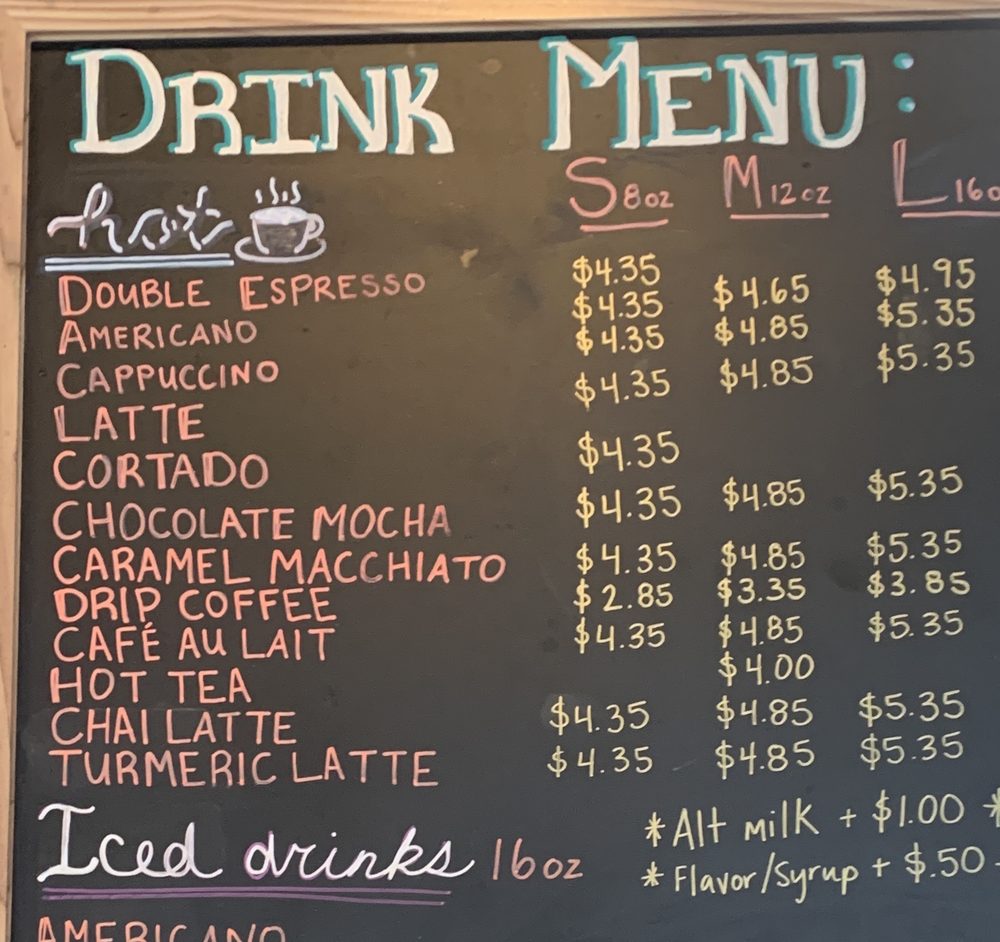 DRINK MENU:
hot S 8oz M 12oz L
DOUBLE ESPRESSO $4.35
AMERICANO $4.35 $4.65 $4.95
CAPPUCCINO $4.35 $4.85 $5.35
LATTE $4.35 $4.85 $5.35
CORTADO $4.35
CHOCOLATE MOCHA $4.35 $4.85 $5.35
CARAMEL MACCHIATO $4.35 $4.85 $5.35
DRIP COFFEE $2.85 $3.35 $3.85
CAFÉ AU LAIT $4.35 $4.85 $5.35
HOT TEA $4.00
CHAI LATTE $4.35 $4.85 $5.35
TURMERIC LATTE $4.35 $4.85 $5.35
*Alt milk + $1.00 *
Iced drinks 16oz
*Flavor/Syrup + $.50
AMERICANO